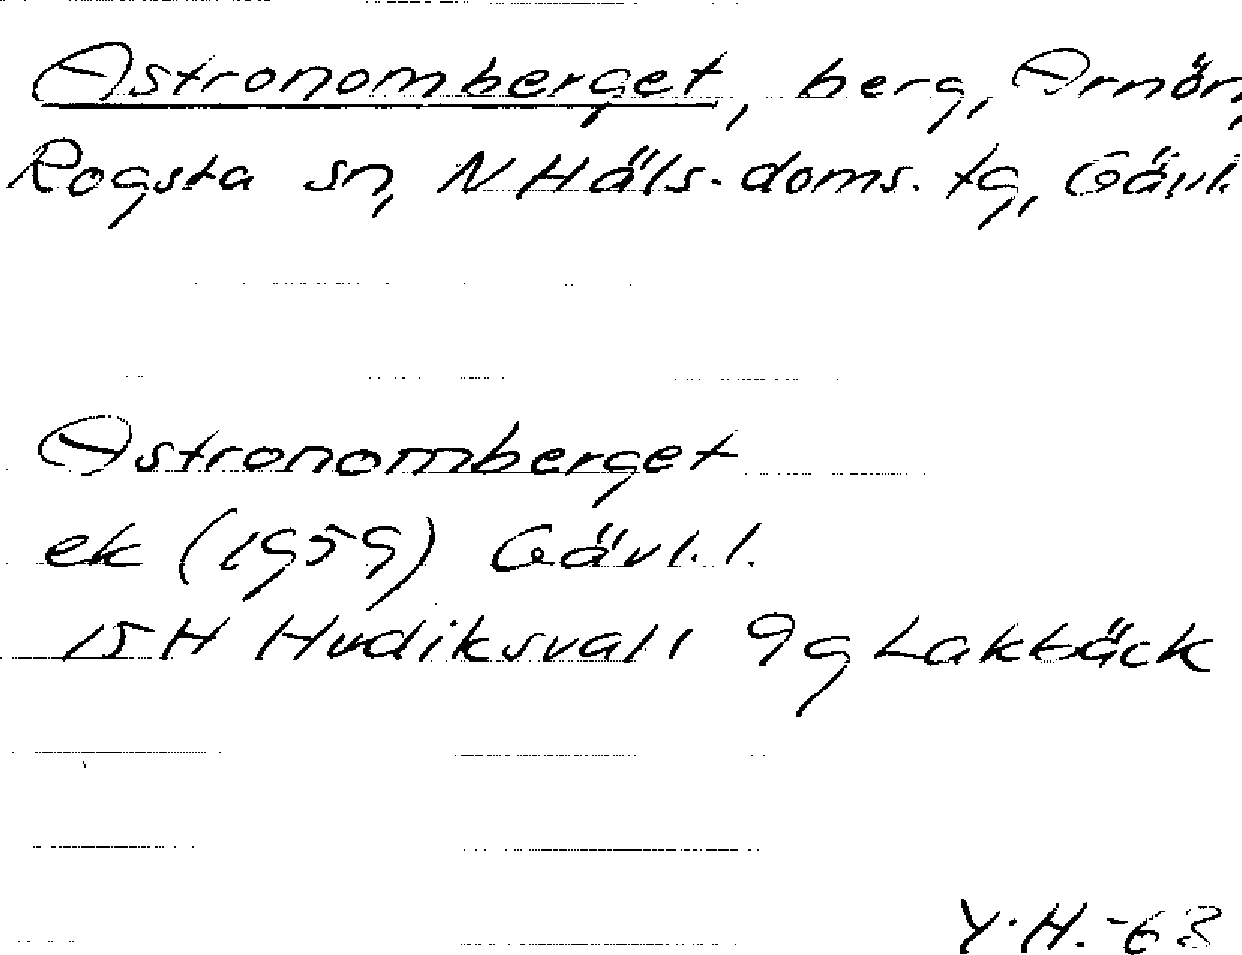 Astronomberget, berg, Arnör,
Rogsta sn, N Häls. doms. tg, Gävl.
Astronomberget
ek (1959) Gävl. l.
15H Hudiksvall 9g Lakbäck
Y.H. -63